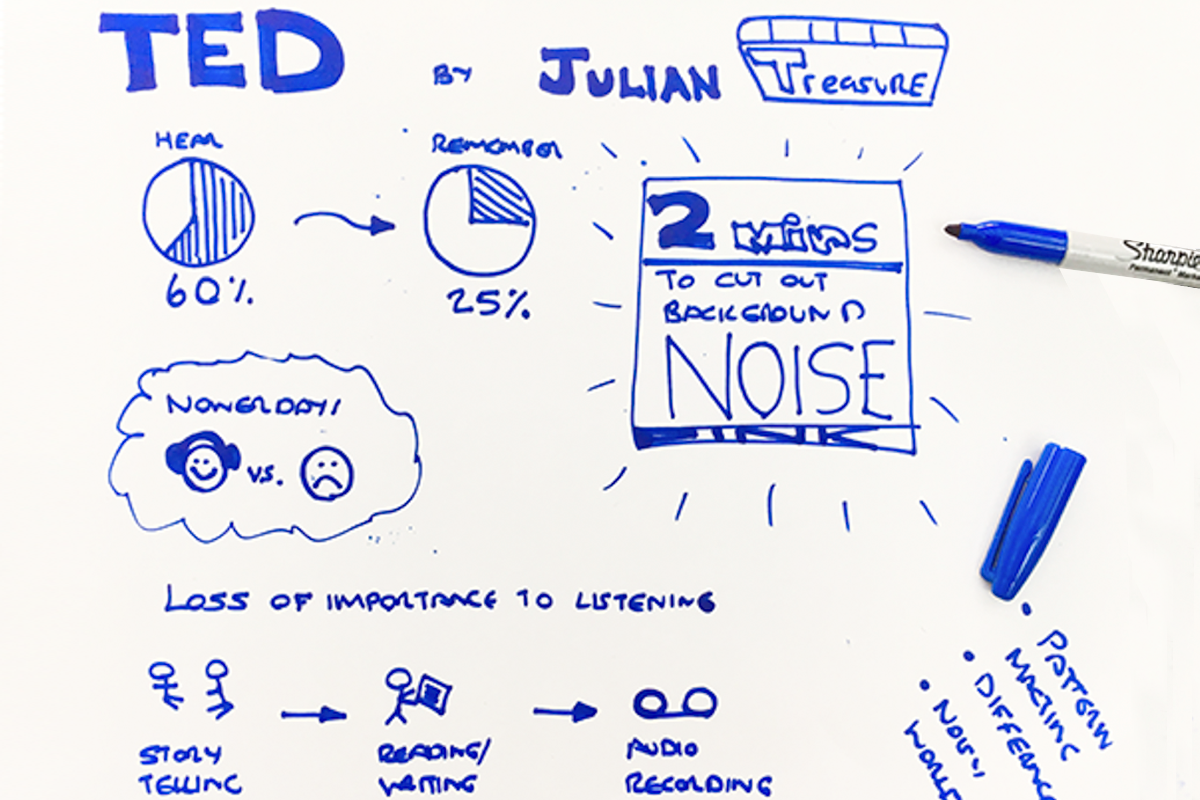 TED BY JULIAN Treasure
HEAR
60%
REMEMBER
25%
2 MINS
TO CUT OUT
BACKGROUND
NOISE
Sharpie
NOWERDAYS
V.S.
LOSS OF IMPORTANCE TO LISTENING
STORY
TELLING
READING/
WRITING
AUDIO
RECORDING
• PATTERN
MATCING
• DIFFERENC
• NOISY
WORLD